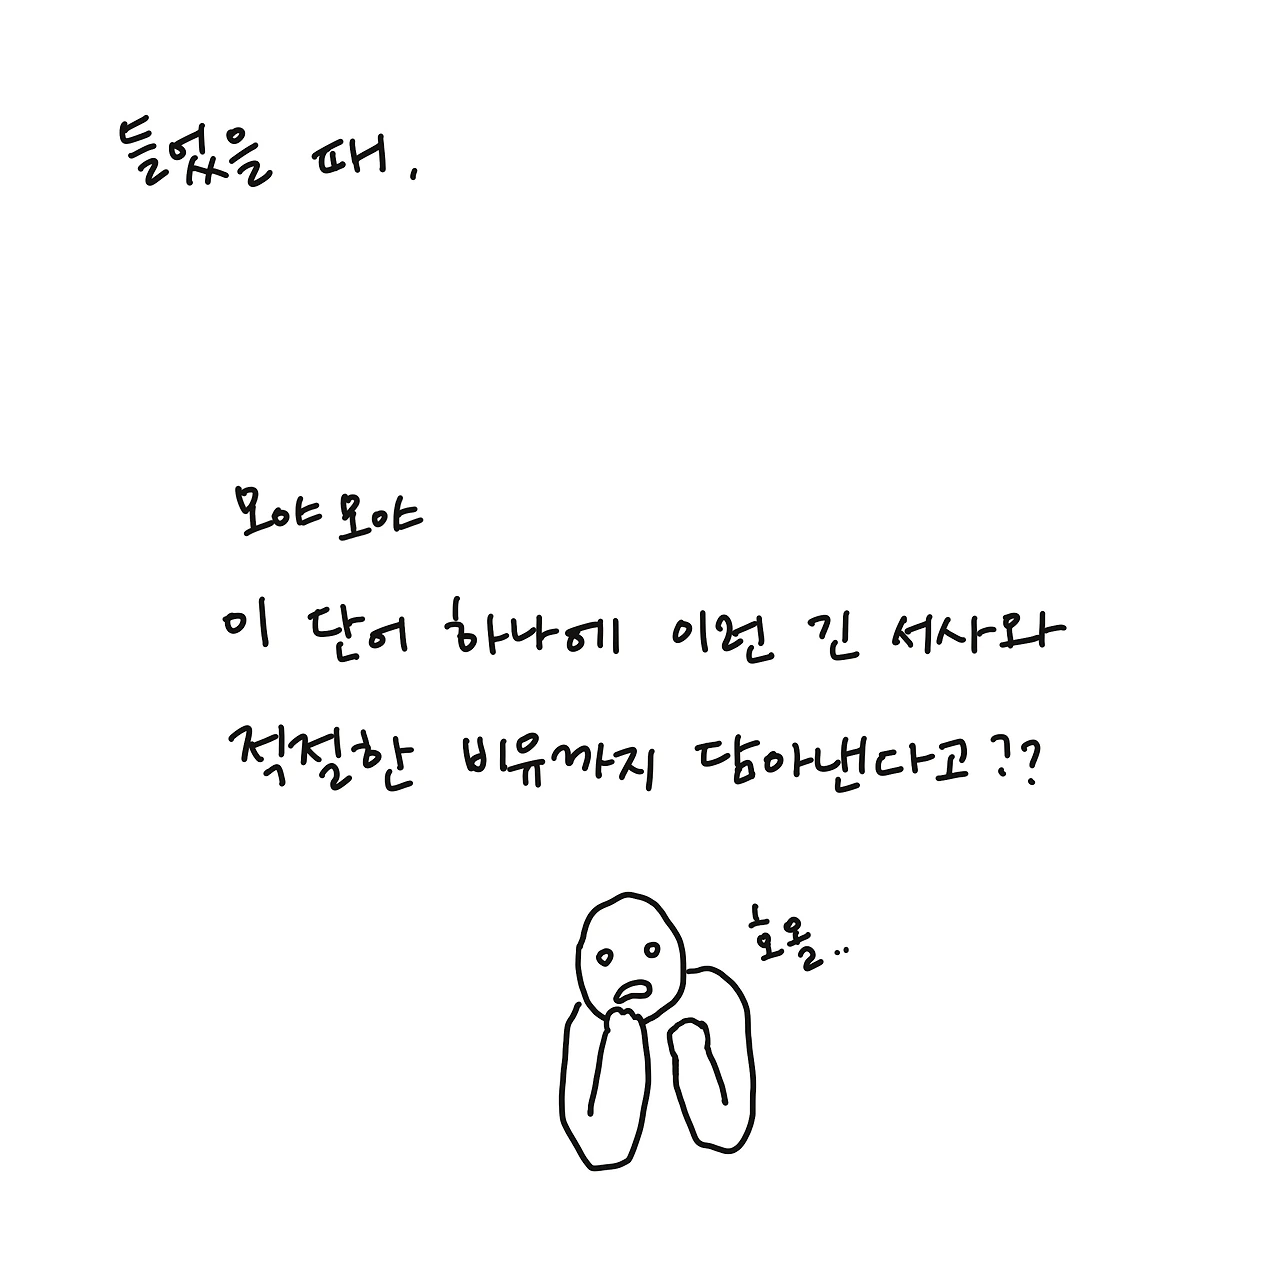 들었을 때,
모야모야
이 단어 하나에 이런 긴 서사와
적절한 비유까지 담아낸다고??
호올..